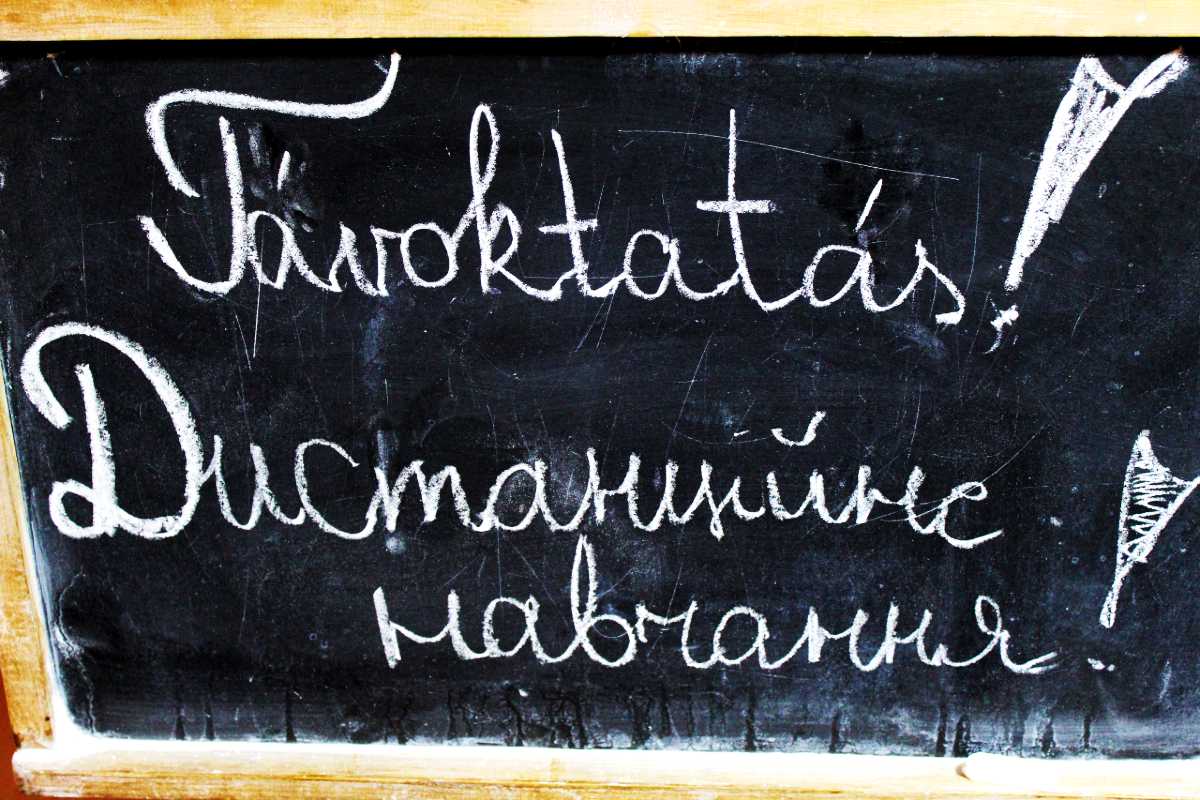 Távoktatás!
Дистанційне
навчання!